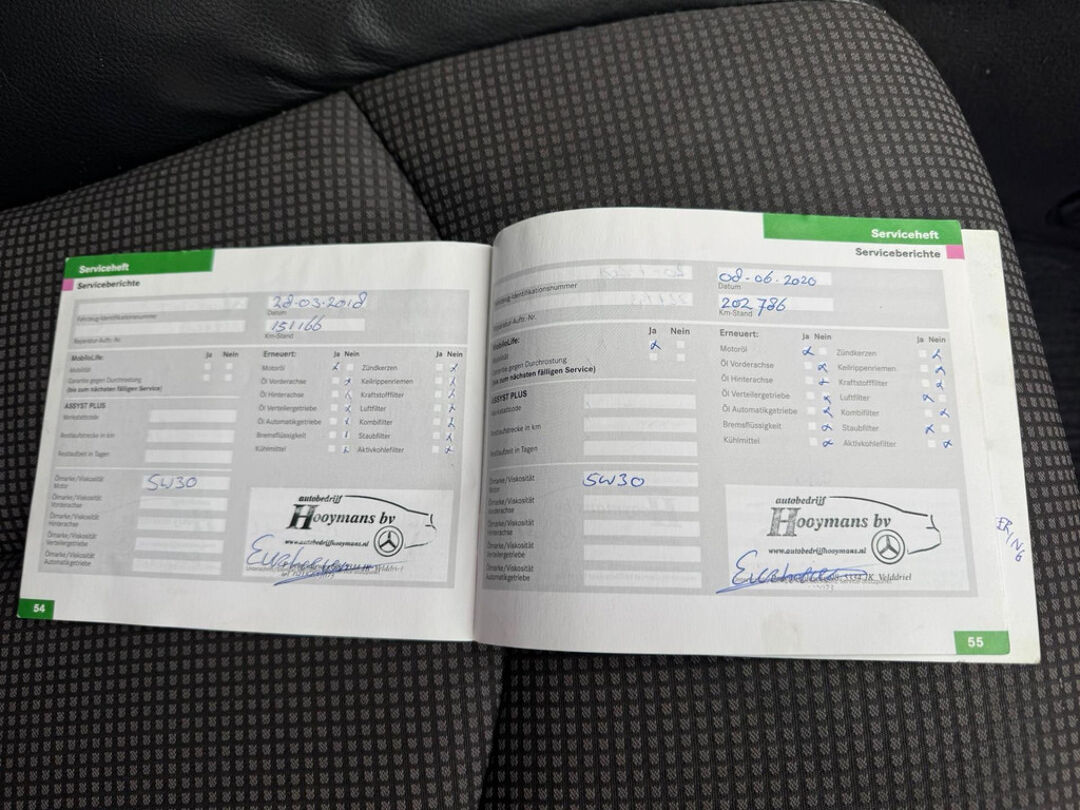 Serviceheft
Serviceberichte
28-03-2018
Datum
Fahrzeug-Identifikationsnummer
151166
Km-Stand
Reparatur-Auftr.-Nr.
MobiloLife: Ja Nein
Mobilität
Garantie gegen Durchrostung
(bis zum nächsten fälligen Service)
ASSYST PLUS
Werkstattcode
Restlaufstrecke in km
Restlaufzeit in Tagen
Ölmarke/Viskosität
Motor
5W30
Ölmarke/Viskosität
Vorderachse
Ölmarke/Viskosität
Hinterachse
Ölmarke/Viskosität
Verteilergetriebe
Ölmarke/Viskosität
Automatikgetriebe
Erneuert: Ja Nein Ja Nein
Motoröl Zündkerzen
Öl Vorderachse Keilrippenriemen
Öl Hinterachse Kraftstofffilter
Öl Verteilergetriebe Luftfilter
Öl Automatikgetriebe Kombifilter
Bremsflüssigkeit Staubfilter
Kühlmittel Aktivkohlefilter
autobedrijf
Hooymans bv
www.autobedrijfhooymans.nl
JK Velddriel
54
Serviceheft
Serviceberichte
08-06-2020
Datum
Fahrzeug-Identifikationsnummer
202786
Km-Stand
Reparatur-Auftr.-Nr.
MobiloLife: Ja Nein
Mobilität
Garantie gegen Durchrostung
(bis zum nächsten fälligen Service)
ASSYST PLUS
Werkstattcode
Restlaufstrecke in km
Restlaufzeit in Tagen
Ölmarke/Viskosität
Motor
5W30
Ölmarke/Viskosität
Vorderachse
Ölmarke/Viskosität
Hinterachse
Ölmarke/Viskosität
Verteilergetriebe
Ölmarke/Viskosität
Automatikgetriebe
Erneuert: Ja Nein Ja Nein
Motoröl Zündkerzen
Öl Vorderachse Keilrippenriemen
Öl Hinterachse Kraftstofffilter
Öl Verteilergetriebe Luftfilter
Öl Automatikgetriebe Kombifilter
Bremsflüssigkeit Staubfilter
Kühlmittel Aktivkohlefilter
autobedrijf
Hooymans bv
www.autobedrijfhooymans.nl
5334 JK Velddriel
55
ERING